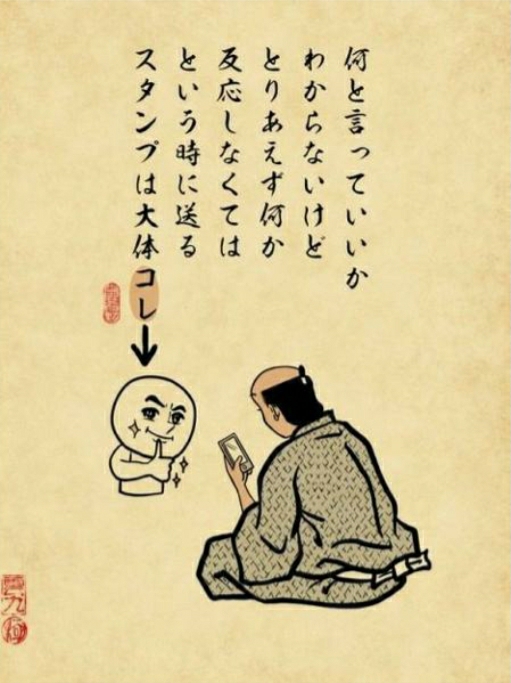 何と言っていいか
わからないけど
とりあえず何か
反応しなくては
という時に送る
スタンプは大体コレ